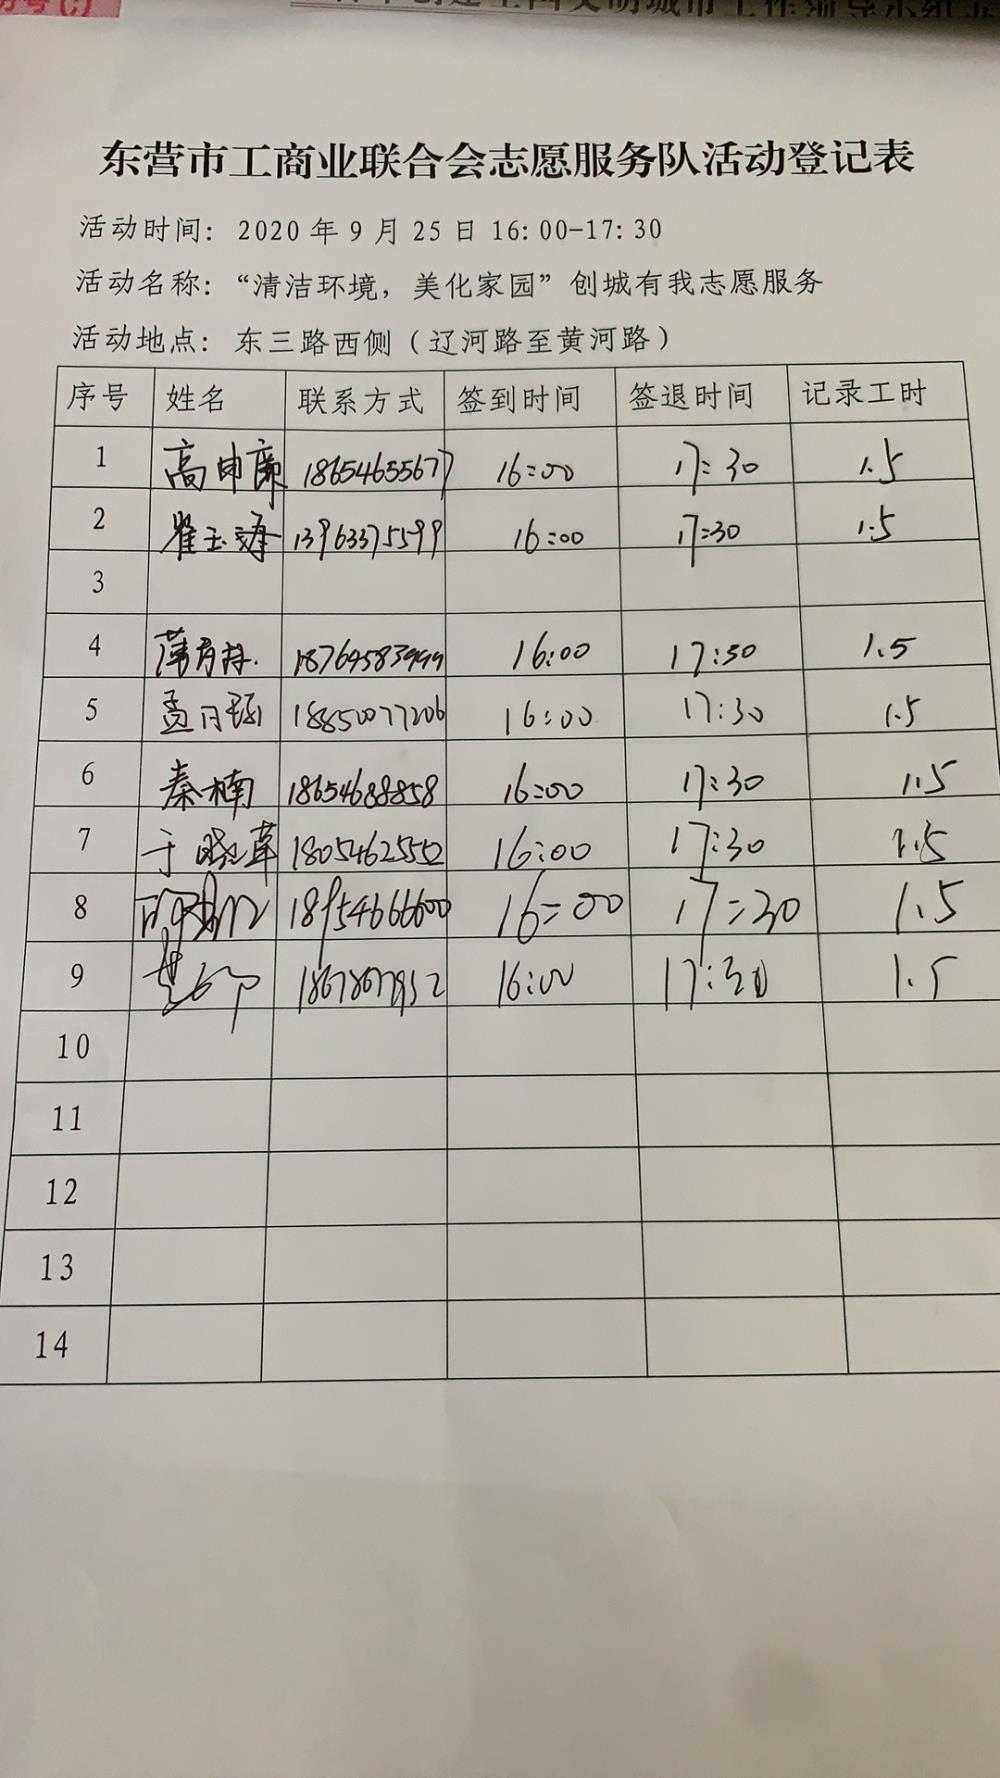 东营市工商业联合会志愿服务队活动登记表
活动时间：2020年9月25日16:00-17:30
活动名称：“清洁环境，美化家园”创城有我志愿服务
活动地点：东三路西侧（辽河路至黄河路）
序号 姓名 联系方式 签到时间 签退时间 记录工时
1 高申廉 18654655677 16:00 17:30 1.5
2 崔玉海 13963375599 16:00 17:30 1.5
3
4 16:00 17:30 1.5
5 18850077206 16:00 17:30 1.5
6 秦楠 18654688858 16:00 17:30 1.5
7 于晓苹 18054625552 16:00 17:30 1.5
8 18954666600 16:00 17:30 1.5
9 16:00 17:30 1.5
10
11
12
13
14